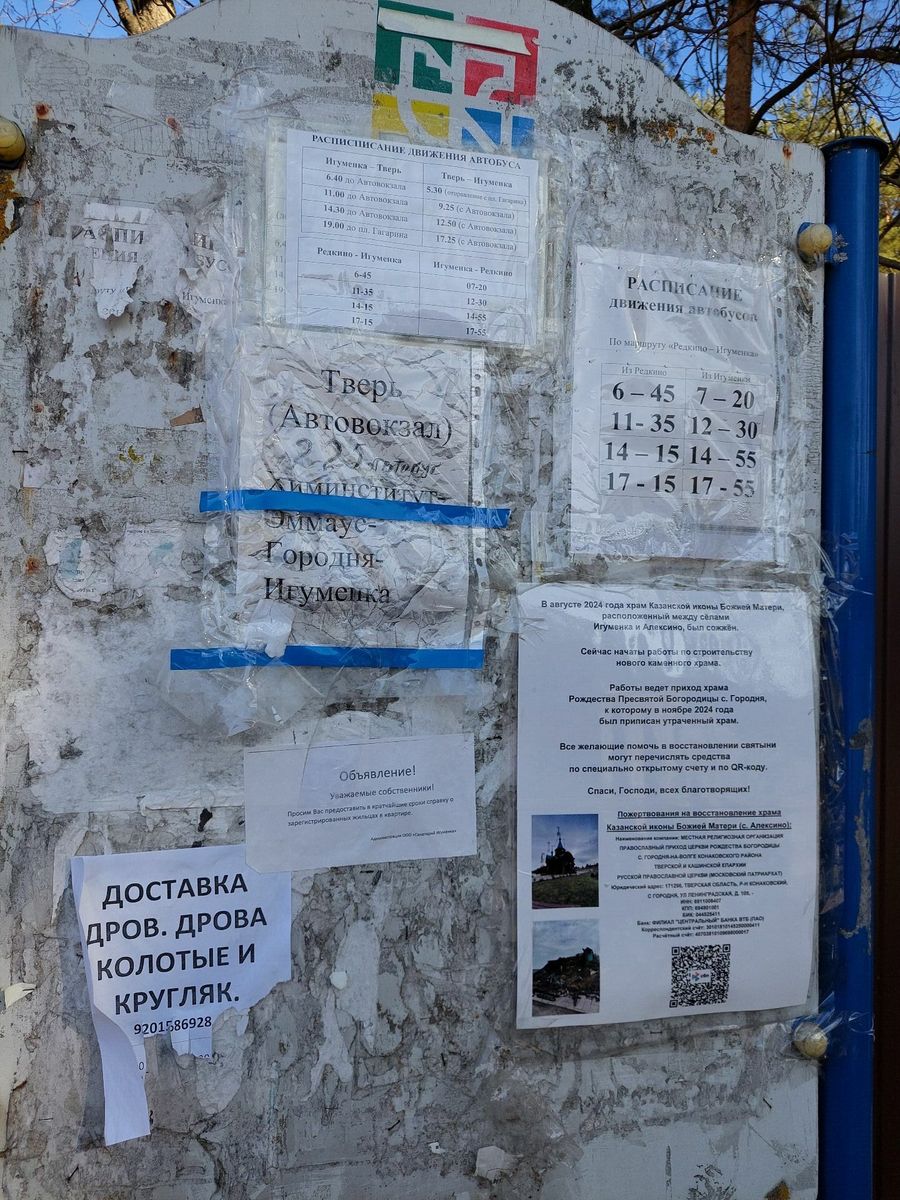 РАСПИСПИСАНИЕ ДВИЖЕНИЯ АВТОБУСА
Игуменка – Тверь
6.40 до Автовокзала
11.00 до Автовокзала
14.30 до Автовокзала
19.00 до пл. Гагарина
Тверь – Игуменка
5.30 (отправление с пл. Гагарина)
9.25 (с Автовокзала)
12.50 (с Автовокзала)
17.25 (с Автовокзала)
Редкино - Игуменка
6-45
11-35
14-15
17-15
Игуменка - Редкино
07-20
12-30
14-55
17-55
РАСПИСАНИЕ
движения автобусов
По маршруту «Редкино – Игуменка»
Из Редкино Из Игуменки
6 – 45 7 – 20
11- 35 12 – 30
14 – 15 14 – 55
17 - 15 17 - 55
Тверь
(Автовокзал)
225 автобус
Химинститут-
Эммаус-
Городня-
Игуменка
В августе 2024 года храм Казанской иконы Божией Матери,
расположенный между сёлами
Игуменка и Алексино, был сожжён.
Сейчас начаты работы по строительству
нового каменного храма.
Работы ведет приход храма
Рождества Пресвятой Богородицы с. Городня,
к которому в ноябре 2024 года
был приписан утраченный храм.
Все желающие помочь в восстановлении святыни
могут перечислять средства
по специально открытому счету и по QR-коду.
Спаси, Господи, всех благотворящих!
Пожертвования на восстановление храма
Казанской иконы Божией Матери (с. Алексино):
Наименование компании: МЕСТНАЯ РЕЛИГИОЗНАЯ ОРГАНИЗАЦИЯ
ПРАВОСЛАВНЫЙ ПРИХОД ЦЕРКВИ РОЖДЕСТВА БОГОРОДИЦЫ
С. ГОРОДНЯ-НА-ВОЛГЕ КОНАКОВСКОГО РАЙОНА
ТВЕРСКОЙ И КАШИНСКОЙ ЕПАРХИИ
РУССКОЙ ПРАВОСЛАВНОЙ ЦЕРКВИ (МОСКОВСКИЙ ПАТРИАРХАТ)
Юридический адрес: 171296, ТВЕРСКАЯ ОБЛАСТЬ, Р-Н КОНАКОВСКИЙ,
С ГОРОДНЯ, УЛ ЛЕНИНГРАДСКАЯ, Д. 108, -
ИНН: 6911009407
КПП: 694901001
БИК: 044525411
Банк: ФИЛИАЛ "ЦЕНТРАЛЬНЫЙ" БАНКА ВТБ (ПАО)
Корреспондентский счёт: 30101810145250000411
Расчётный счёт:
Объявление!
Уважаемые собственники!
Просим Вас предоставить в кратчайшие сроки справку о
зарегистрированных жильцах в квартире.
Администрация ООО «Санаторий Игуменка»
ДОСТАВКА
ДРОВ. ДРОВА
КОЛОТЫЕ И
КРУГЛЯК.
9201586928